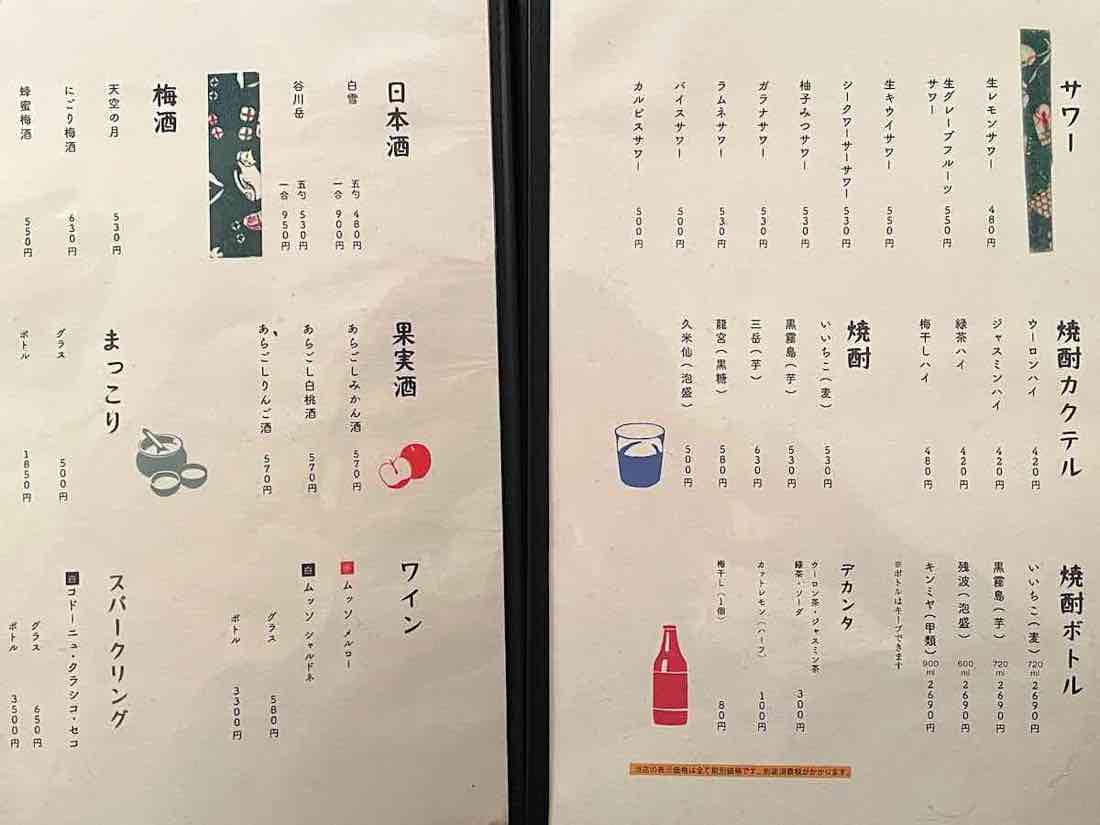 サワー
生レモンサワー 480円
生グレープフルーツ
サワー 550円
生キウイサワー 550円
シークワーサーサワー 530円
柚子みつサワー 530円
ガラナサワー 530円
ラムネサワー 530円
バイスサワー 500円
カルピスサワー 500円
焼酎カクテル
ウーロンハイ 420円
ジャスミンハイ 420円
緑茶ハイ 420円
梅干しハイ 480円
焼酎
いいちこ(麦) 530円
黒霧島(芋) 530円
三岳(芋) 630円
龍宮(黒糖) 580円
久米仙(泡盛) 500円
焼酎ボトル
いいちこ(麦) 720ml 2690円
黒霧島(芋) 720ml 2690円
残波(泡盛) 600ml 2690円
キンミヤ(甲類) 900ml 2690円
※ボトルはキープできます
デカンタ
ウーロン茶・ジャスミン茶
緑茶・ソーダ 300円
カットレモン(ハーフ) 100円
梅干し(1個) 80円
当店の表示価格は全て税別価格です。別途消費税がかかります。
日本酒
白雪 五勺 480円
一合 900円
谷川岳 五勺 530円
一合 950円
梅酒
天空の月 530円
にごり梅酒 630円
蜂蜜梅酒 550円
果実酒
あらごしみかん酒 570円
あらごし白桃酒 570円
あらごしりんご酒 570円
まっこり
グラス 500円
ボトル 1850円
ワイン
赤 ムッソ メルロー
白 ムッソ シャルドネ
グラス 580円
ボトル 3300円
スパークリング
白 コドーニュ・クラシコ・セコ
グラス 650円
ボトル 3500円